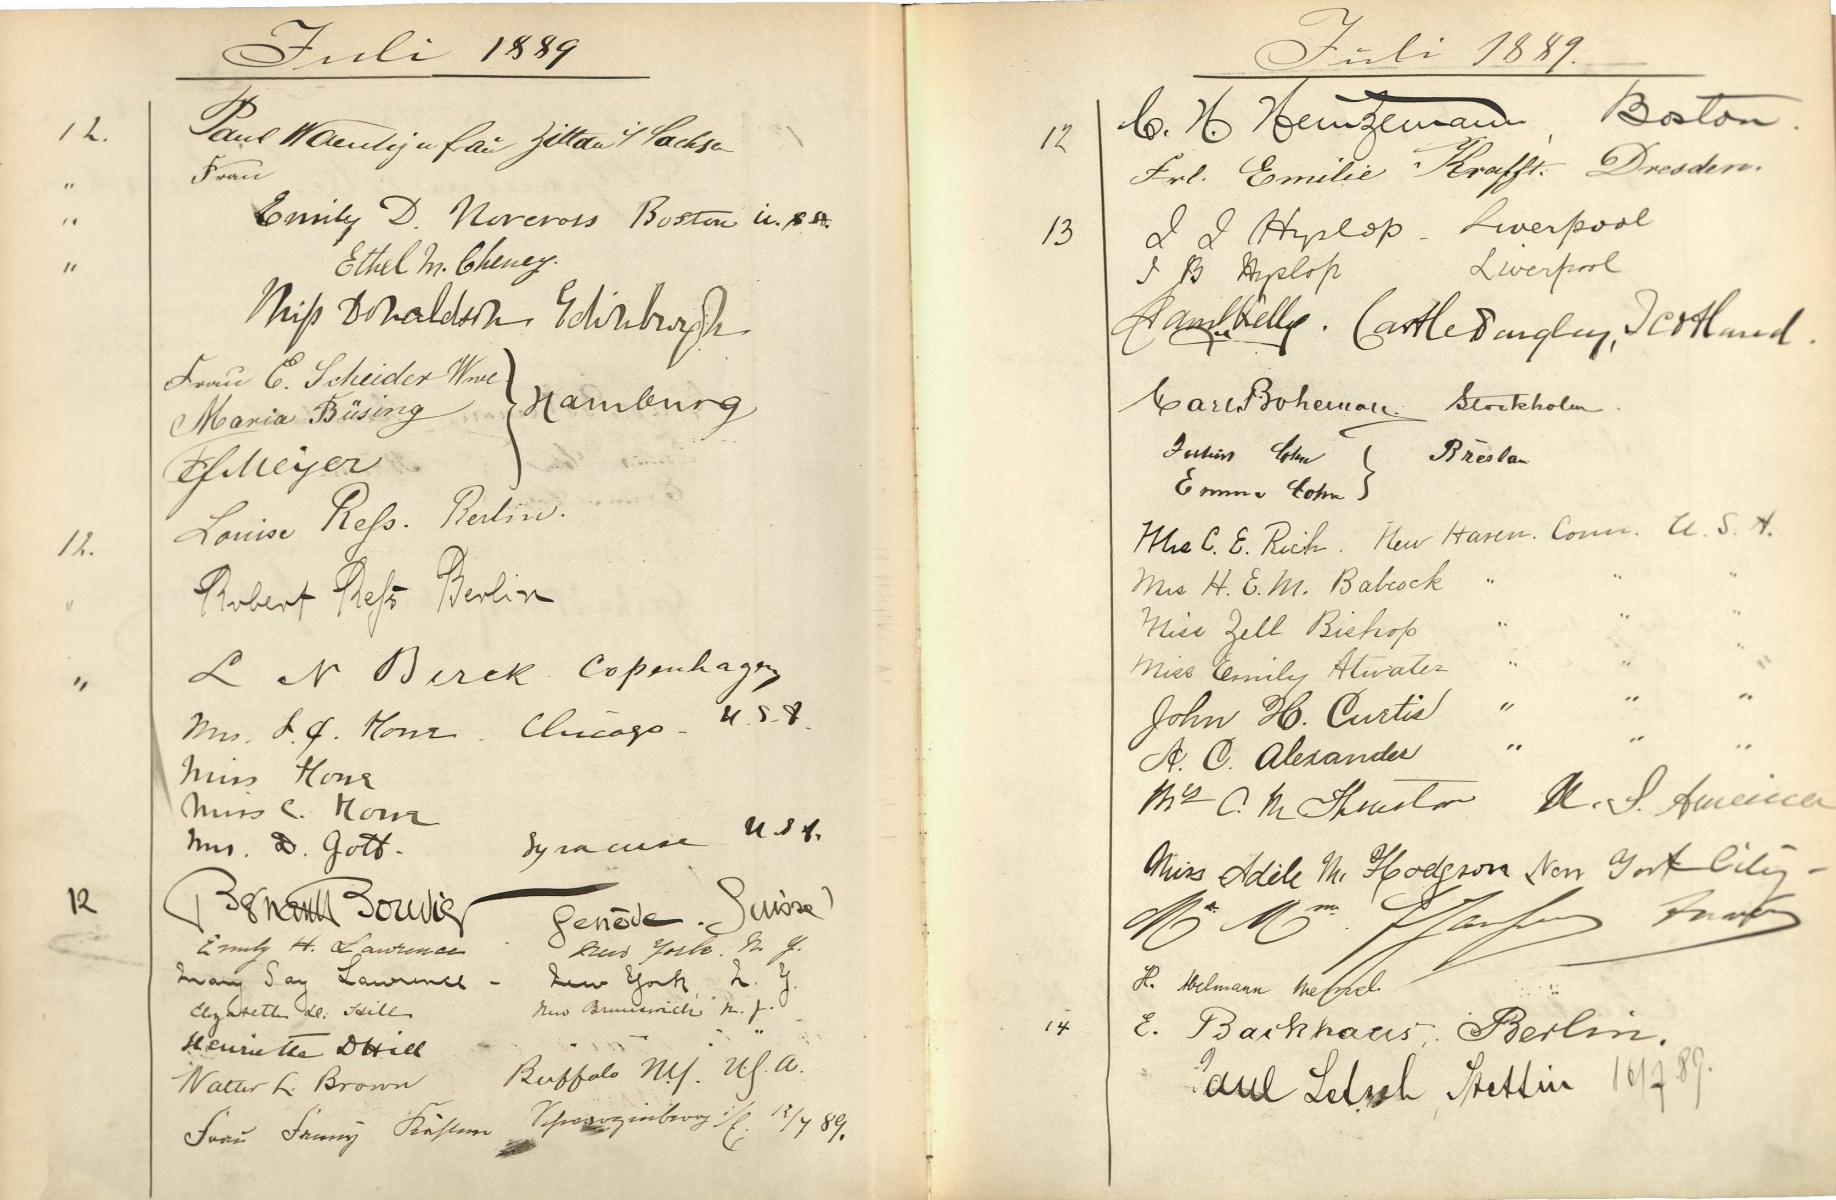 Juli 1889
12. Paul Waentig u Frau Zittau i/ Sachsen
" Frau
" Emily D. Norcross Boston U.S.A.
" Ethel M. Cheney.
Miss Donaldson Edinburgh
Frau E. Scheider Wwe
Maria Büsing } Hamburg
Meijer
Louise Reß. Berlin.
12.
" Robert Reß Berlin
" L N Birck Copenhagen
Mrs. Chicago - U.S.A.
Miss
Miss C.
Mrs. D. Gott. Syracuse U.S.A.
12 Bouvier Genève. Suisse
Emily H. Lawrence New York. N. Y.
Mary Day Lawrence - New York, N. Y.
Elizabeth Hill New Brunswick N. J.
Henrietta D Hill " " " "
Walter L. Brown Buffalo N.Y. U.S.A.
Frau Fanny 12/7 89.
Juli 1889.
12 C. H. Heintzemann, Boston.
Frl. Emilie Krafft. Dresden.
13 J J Hyslop - Liverpool
J B Hyslop Liverpool
Saml Kelly. Castle Douglas, Scotland.
Carl Boheman. Stockholm.
Julius Cohn } Breslau
Emma Cohn
Mrs C. E. Rich. New Haven. Conn. U. S. A.
Mrs H. E. M. Babcock " " "
Miss Zell Bishop " " "
Miss Emily Atwater " " "
John H. Curtis " " "
A. C. Alexander " " "
Mrs C. M Thurston U. S. America
Miss Adele M. Hodgson New York City -
Mr. Mm.
H.
14 E. Backhaus, Berlin.
Paul Letsch, Stettin 14/7 89.